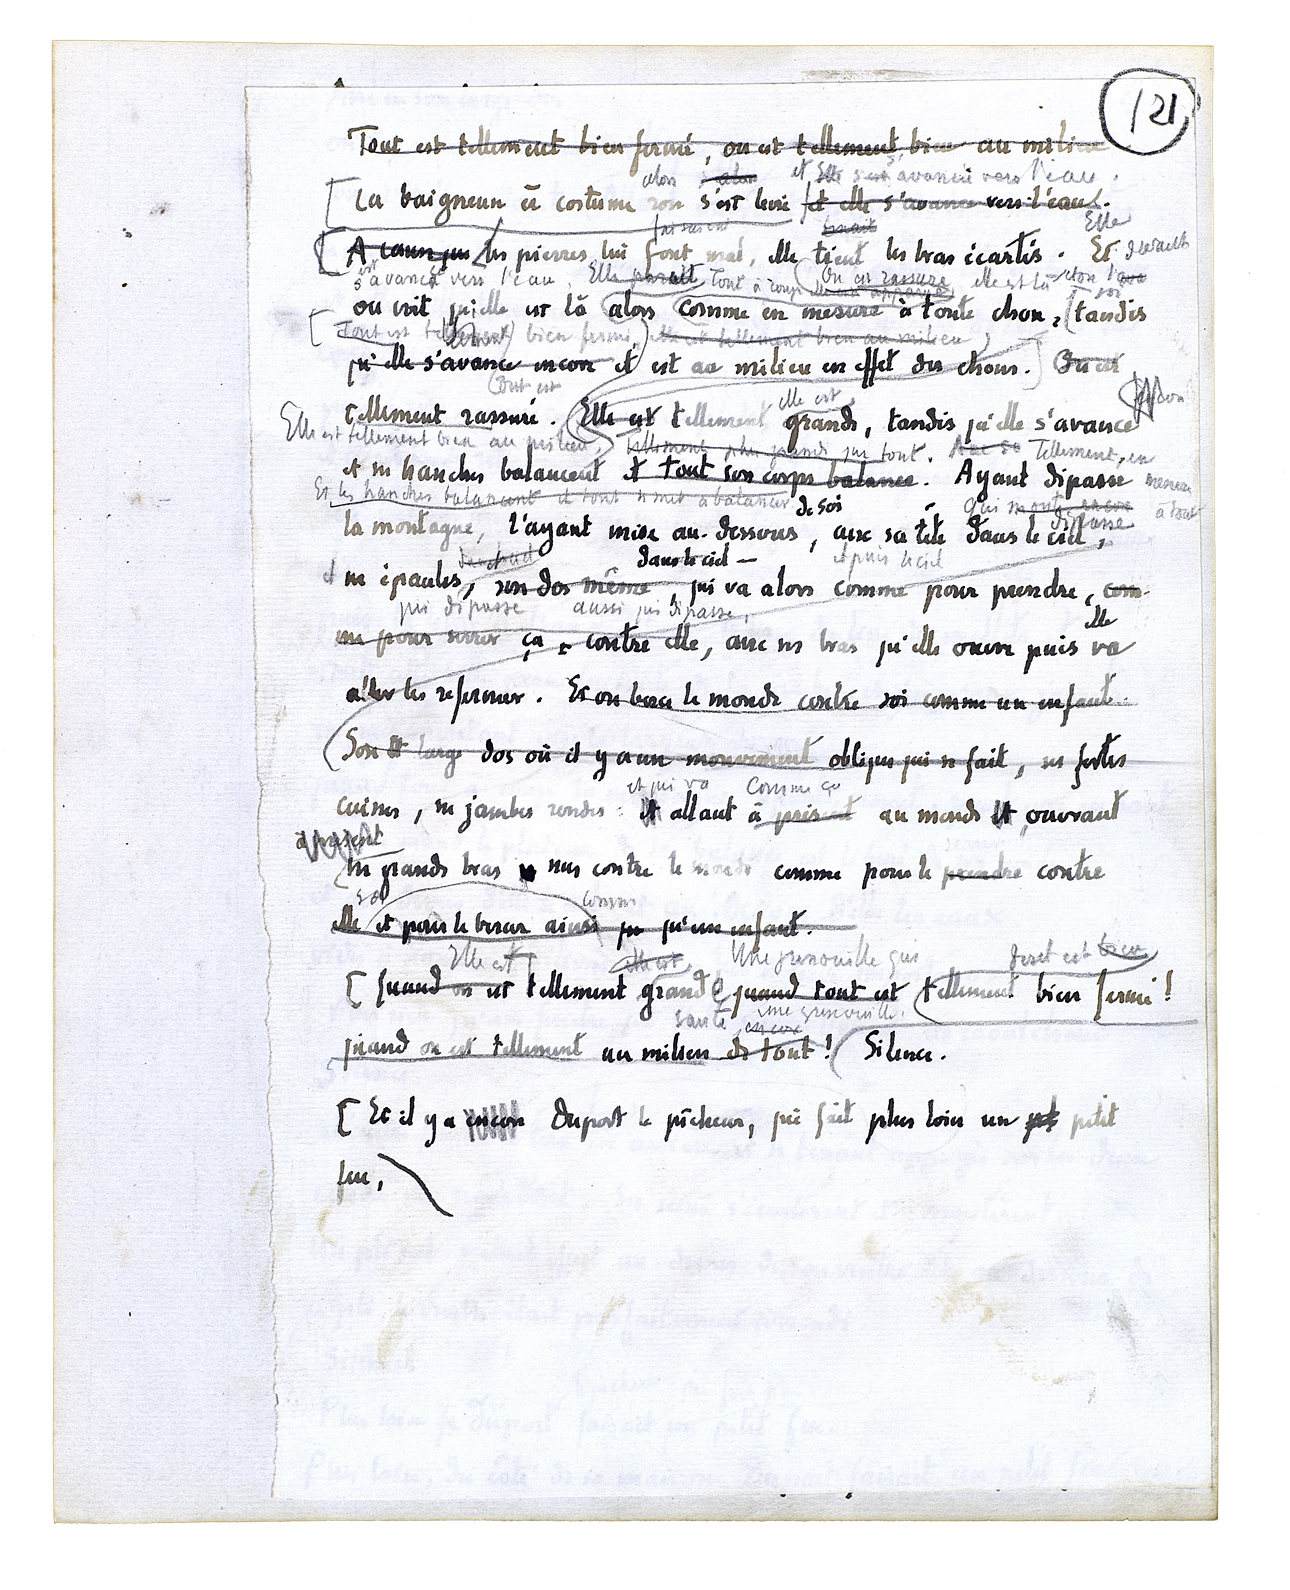 121
Tout est tellement bien fermé, on est tellement bien au milieu
alors et elle s'est avancée vers l'eau.
La baigneuse en costume rose s'est levée et elle s'avance vers l'eau.
faisaient tenait Elle
A cause que les pierres lui font mal, elle tient les bras écartés. Et
s'avance vers l'eau. Elle paraît Tout à coup On est rassuré elle est là
on voit qu'elle est là alors comme en mesure à toute chose, tandis
Tout est tellement bien fermé, elle est tellement bien au milieu
qu'elle s'avance encore et est au milieu en effet des choses. On est
Tout est elle est
tellement rassuré. Elle est tellement grande, tandis qu'elle s'avance
Elle est tellement bien au milieu, tellement plus grande que tout. Tellement, en
et ses hanches balancent et tout son corps balance. Ayant dépassé
Et les hanches balancent et tout se met à balancer de soi qui monte encore
la montagne, l'ayant mise au-dessous, avec sa tête dans le ciel,
dépasse
dans le ciel — et puis le ciel
et ses épaules, son dos même, qui va alors comme pour prendre, com-
qui dépasse aussi qui dépasse,
me pour serrer ça, contre elle, avec ses bras qu'elle ouvre puis va
elle
aller les refermer. Et on berce le monde contre soi comme un enfant.
Son large dos où il y a un mouvement oblique qui se fait, ses fortes
et qui va Comme ça
cuisses, ses jambes rondes: et allant à présent au monde et, ouvrant
à présent
ses grands bras nus contre le monde comme pour le prendre contre
comme
elle et pour le bercer ainsi qu'un enfant.
Elle est elle est Une grenouille qui Tout est bien
Quand on est tellement grande quand tout est tellement bien fermé!
saute, encore une grenouille.
quand on est tellement au milieu de tout! Silence.
Et il y a encore Duport le pêcheur, qui fait plus loin un petit
feu,